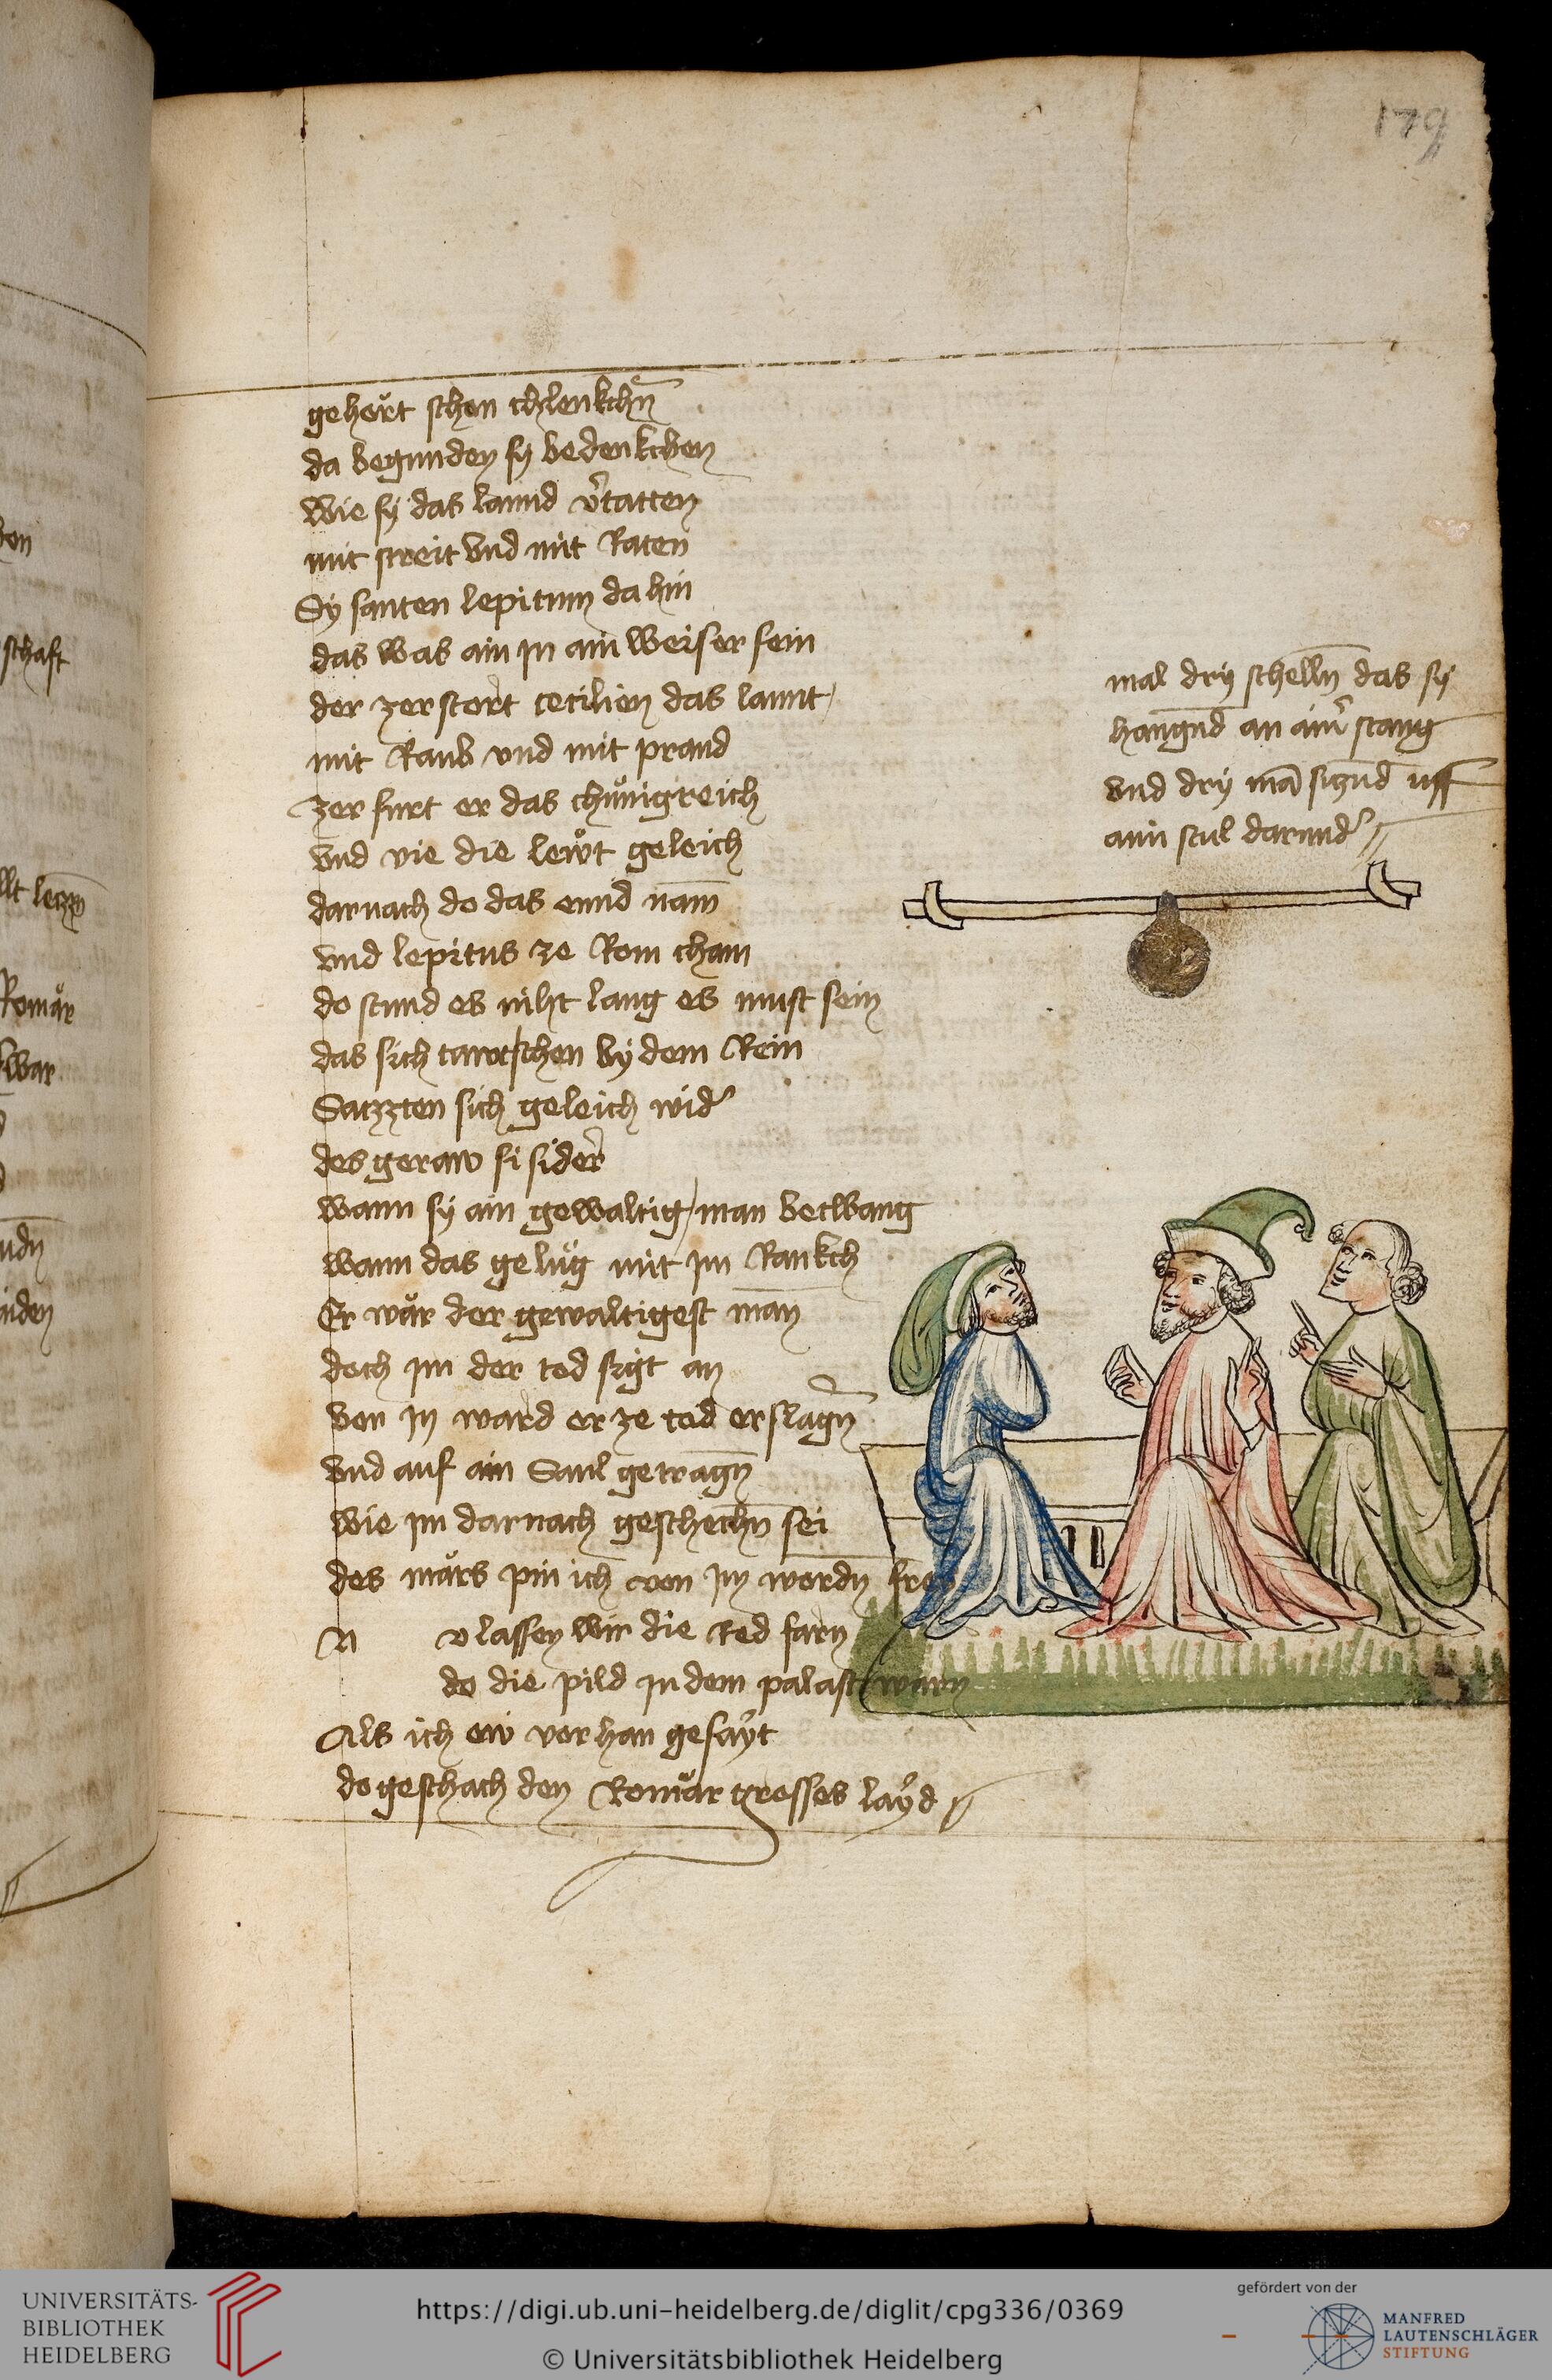 179
gehört schon chlenkchn̄
da begunden sy bedenkchen
Wie sy das lannd v̾tatten
mit streit vnd mit Raten
Sy santen lepitum da hin
das was ain jn ain weiser sein
der zerstort cecilien das lannt
mit Raub vnd mit prand
Zer furt er das chünigreich
Vnd vie die lewt geleich
darnach do das ennd nam̄
vnd lepitus ze Rom cham
do stund es niht lang es must sein
das sich tawtschen by dem Rein
Satzzten sich geleich wid̾
des geraw si sider
wann sy ain gewaltig man betwang
wann das gelüg mit jm Rankch
Er wär der gewaltigest man
doch jm der tod sigt an
von jn ward er ze tod erslagn̄
Vnd auf ain Saul getragn̄
Wie jm darnach geschechn̄ sei
des märs pin ich von jn wordn̄ frey
N v lassen wir die Red farn
do die pild jn dem palast warn
Als ich ew vor han gesayt
do geschach den Romär grosses layd
mal dry schelln̄ das sy
hangnd an ain̾ stang
vnd dry mā siznd uff
ain stul darund̾
schaft
Romär
war
UNIVERSITÄTS-
BIBLIOTHEK
HEIDELBERG
https://digi.ub.uni-heidelberg.de/diglit/cpg336/0369
© Universitätsbibliothek Heidelberg
gefördert von der
MANFRED
LAUTENSCHLÄGER
STIFTUNG